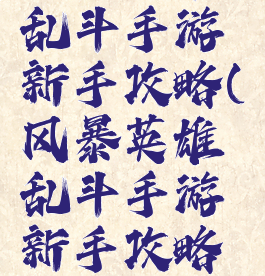 乱斗手游
新手攻略(
风暴英雄
乱斗手游
新手攻略